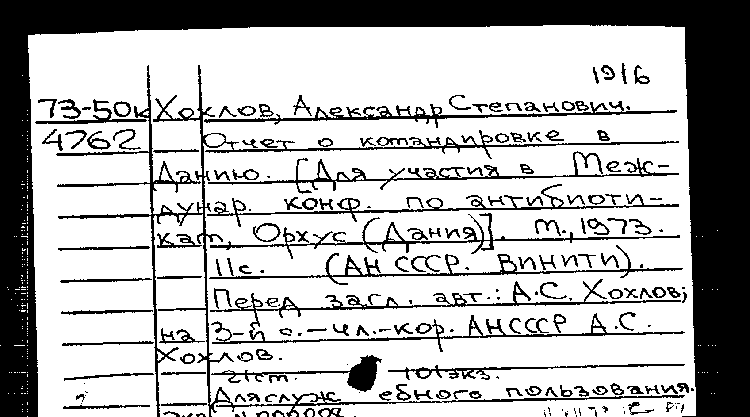 1916
73-50к Хохлов, Александр Степанович.
4762 Отчет о командировке в
Данию. [Для участия в Меж-
дунар. конф. по антибиоти-
кам, Орхус (Дания)]. М., 1973.
11с. (АН СССР. ВИНИТИ).
Перед загл. авт.: А.С. Хохлов;
на 3-й с. - чл.-кор. АНСССР А.С.
Хохлов.
21ст. 101экз.
Для служ ебного пользования.